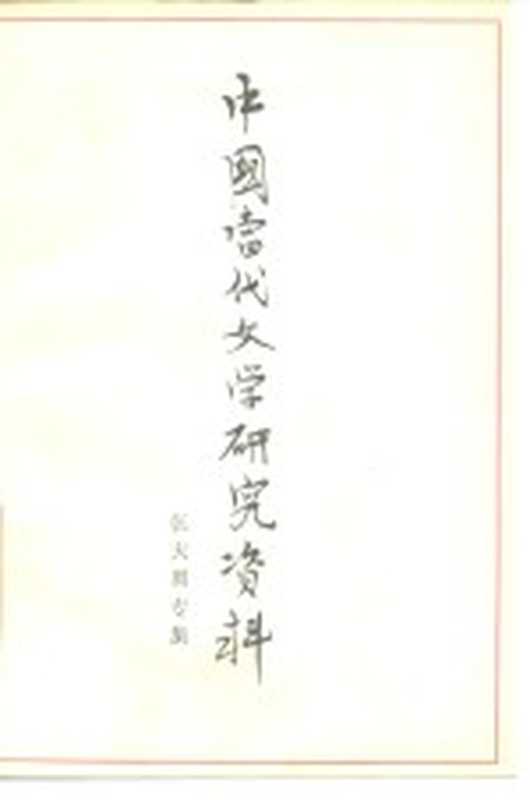 中國當代文学研究資料
张天翼专集